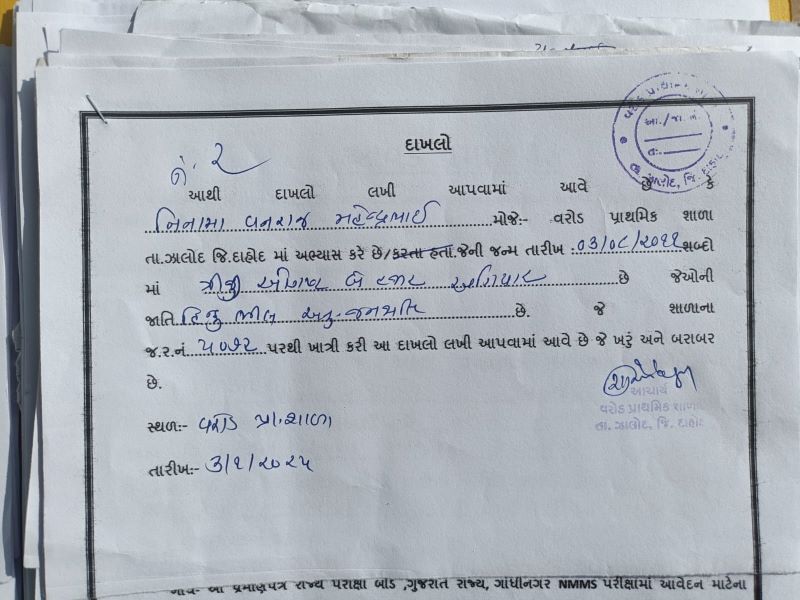 વરોડ પ્રાથ
આ./જા. નં.
તા:
તા. ઝાલોદ, જિ. દાહોદ
દાખલો
નં. ૨
આથી દાખલો લખી આપવામાં આવે છે કે
નિનામા વનરાજ મહેન્દ્રભાઈ મોજે:- વરોડ પ્રાથમિક શાળા
તા.ઝાલોદ જિ.દાહોદ માં અભ્યાસ કરે છે/કરતા હતાં.જેની જન્મ તારીખ :૦૩/૦૮/૨૦૧૧ શબ્દો
માં ત્રીજી ઓગષ્ટ બે હજાર અગિયાર છે જેઓની
જાતિ હિન્દુ ભીલ અનુ.જનજાતિ છે. જે શાળાના
જ.ર.નં ૫૦૭૨ પરથી ખાત્રી કરી આ દાખલો લખી આપવામાં આવે છે જે ખરું અને બરાબર
છે.
આચાર્ય
વરોડ પ્રાથમિક શાળા
તા. ઝાલોદ, જિ. દાહોદ
સ્થળ:- વરોડ પ્રા.શાળા
તારીખ:- ૩/૧/૨૦૨૫
નોંધ- આ પ્રમાણપત્ર રાજ્ય પરીક્ષા બોર્ડ ,ગુજરાત રાજ્ય, ગાંધીનગર NMMS પરીક્ષામાં આવેદન માટેના